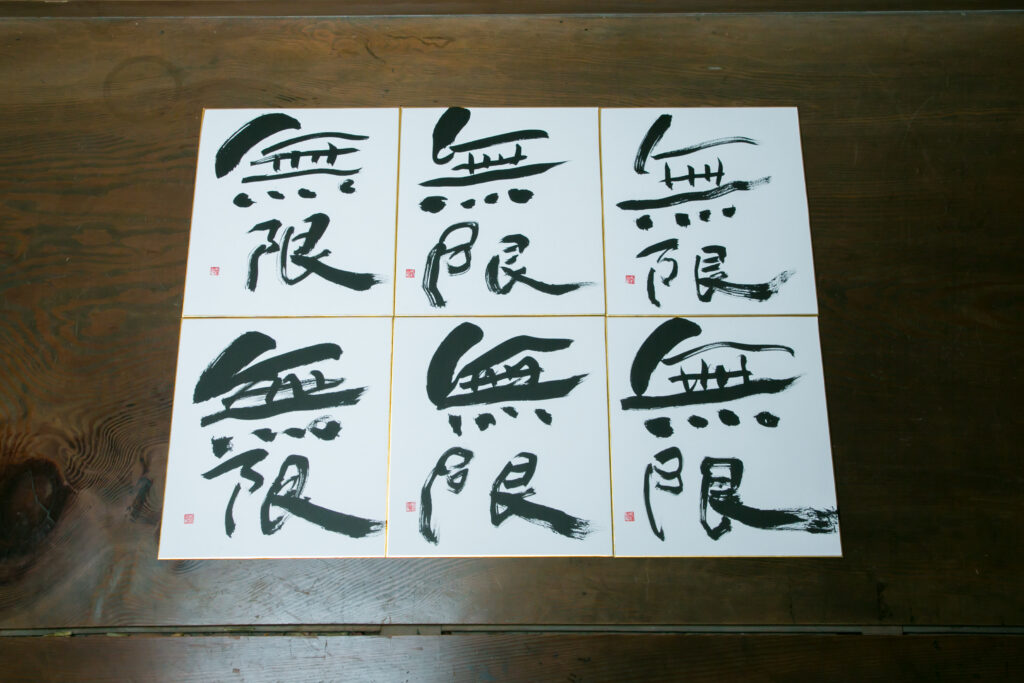 無
限
無
限
無
限
無
限
無
限
無
限